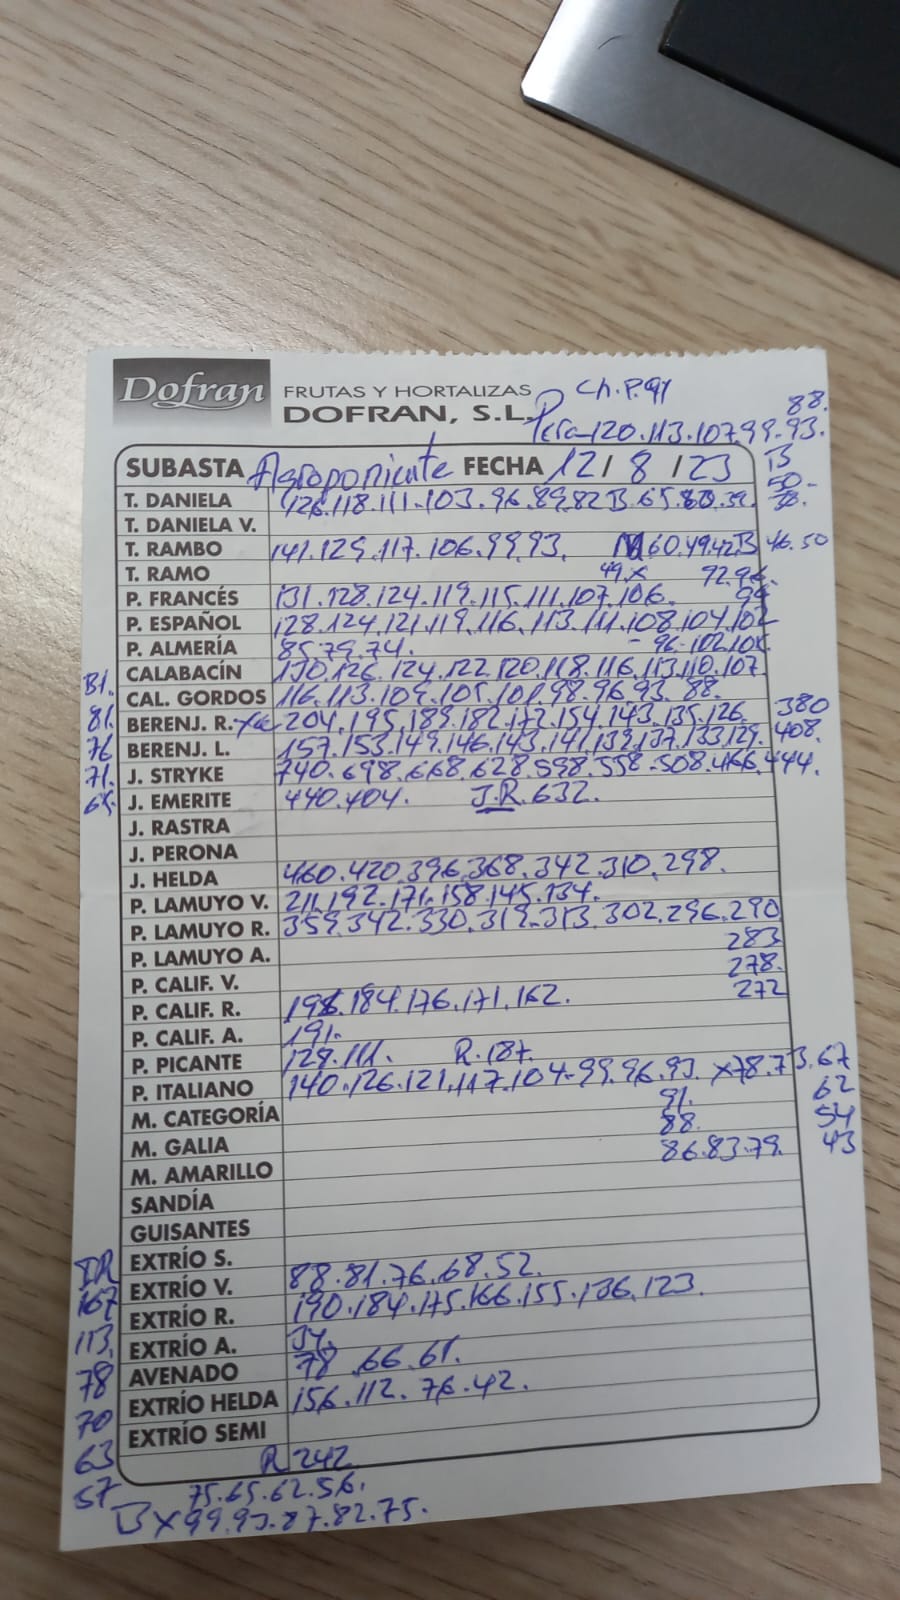 Dofran FRUTAS Y HORTALIZAS
DOFRAN, S.L.
Ch.P.91
88.
Pera-120.113.107.99.93.
SUBASTA Agroponiente FECHA 12/8/23 B
T. DANIELA 126.118.111.103.96.89.82 B.65.60.39. 50-
T. DANIELA V.
T. RAMBO 141.129.117.106.99.93. M 60.49.42.B 46.50
T. RAMO 49.x 92.96.
P. FRANCÉS 131.128.124.119.115.111.107.106. 99
P. ESPAÑOL 128.124.121.119.116.113.111.108.104.102
P. ALMERÍA 85.79.74. - 96.102.105.
CALABACÍN 130.126.124.122.120.118.116.113.110.107.
B1. CAL. GORDOS 116.113.109.105.101.98.96.93.88.
81. BERENJ. R. 204.195.189.182.172.154.143.135.126. 380
76 BERENJ. L. 157.153.149.146.143.141.139.137.133.129. 408.
71. J. STRYKE 740.698.668.628.598.558.508.466.444.
65. J. EMERITE 440.404. J.R.632.
J. RASTRA
J. PERONA
J. HELDA 460.420.396.368.342.310.298.
P. LAMUYO V. 211.192.171.158.145.134.
P. LAMUYO R. 359.342.330.319.313.302.296.290
P. LAMUYO A. 283
P. CALIF. V. 278.
P. CALIF. R. 198.184.176.171.162. 272
P. CALIF. A. 191.
P. PICANTE 129.111. R.187.
P. ITALIANO 140.126.121.117.104-99.96.93. x78.73.67
M. CATEGORÍA 91. 62
M. GALIA 88. 54
M. AMARILLO 86.83.79. 43
SANDÍA
GUISANTES
DR EXTRÍO S.
167 EXTRÍO V. 88.81.76.68.52.
113. EXTRÍO R. 190.184.175.166.155.136.123.
78 EXTRÍO A. 34.
AVENADO 78.66.61.
70 EXTRÍO HELDA 156.112.76.42.
63 EXTRÍO SEMI
R 242
57 75.65.62.56.
B x 99.93.87.82.75.